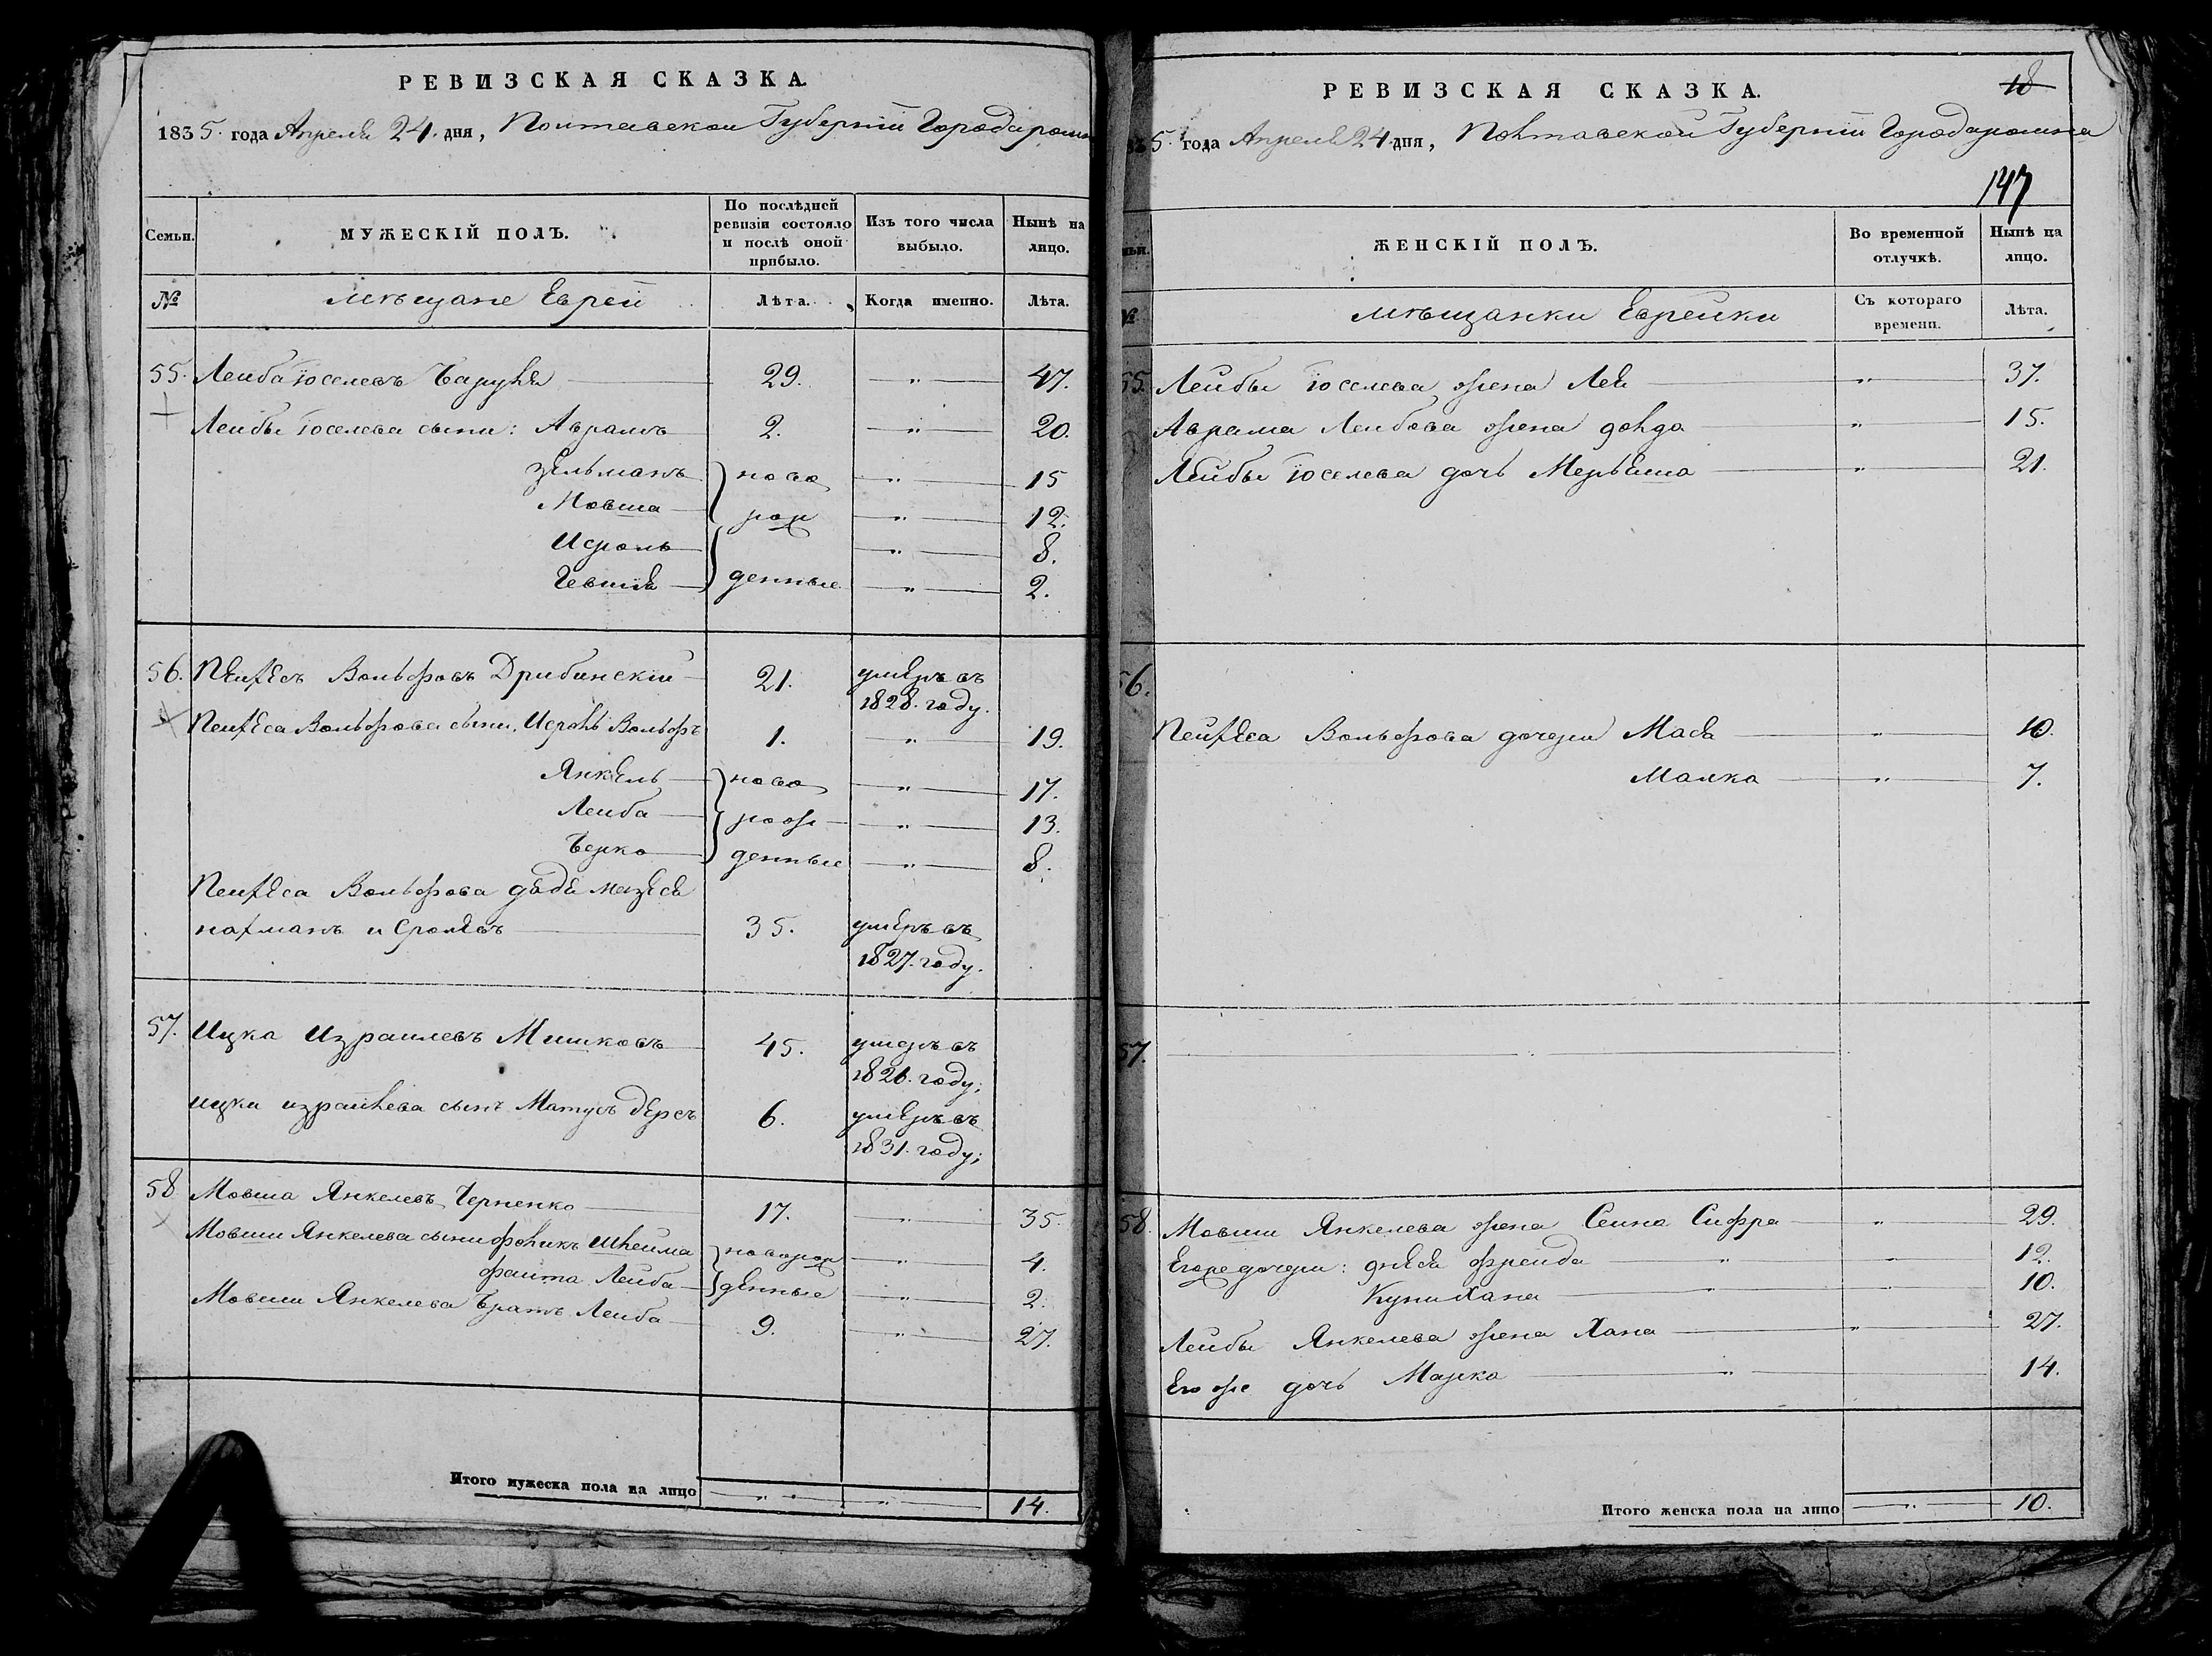 РЕВИЗСКАЯ СКАЗКА.
1835. года Апреля 24. дня, Полтавской Губернии Города ромна
Семьи.
МУЖЕСКІЙ ПОЛЪ.
По послѣдней ревизіи состояло и послѣ оной прибыло.
Изъ того числа выбыло.
Нынѣ на лицо.
№
мѣщане Евреи
Лѣта.
Когда именно.
Лѣта.
55. Лейба Іоселевъ 29. " 47.
Лейбы Іоселева сыни: Аврамъ 2. " 20.
Зельманъ ново " 15
Мовша рож " 12.
Исроль " 8.
денные " 2.
56. Пейсесъ Вольфовъ Дрибинскій 21. умеръ въ
1828. году.
Вольфова сыни. Исроль Вольфъ 1. " 19.
Янкель ново " 17.
Лейба рож " 13.
Берко денные " 8.
Вольфова дядя
нахманъ 35. умеръ въ
1827. году.
57. Ицка Израилевъ Мишковъ 45. умеръ въ
1826. году;
ицки израилева сынъ Матусъ беръ 6. умеръ въ
1831. году;
58 Мовша Янкелевъ Черненко 17. " 35.
Мовши Янкелева сыни новорож " 4.
Лейба денные " 2.
Мовши Янкелева братъ Лейба 9. " 27.
Итого мужеска пола на лицо " " 14.
РЕВИЗСКАЯ СКАЗКА.
18
835. года Апреля 24. дня, Полтавской Губернии Города ромна
147
ЖЕНСКІЙ ПОЛЪ.
Во временной отлучкѣ.
Нынѣ на лицо.
№
мѣщанки Еврейки
Съ котораго времени.
Лѣта.
55. Лейбы Іоселева жена Лея " 37.
Аврама Лейбова жена " 15.
Лейбы Іоселева дочь " 21.
56.
Вольфова дочери Мася " 10.
Малка " 7.
57. "
58. Мовши Янкелева жена Сифра " 29.
Егоже дочери: фрейда " " 12.
Куни Хана " 10.
Лейбы Янкелева жена Хана " 27.
Его же дочь Марка " 14.
Итого женска пола на лицо " 10.